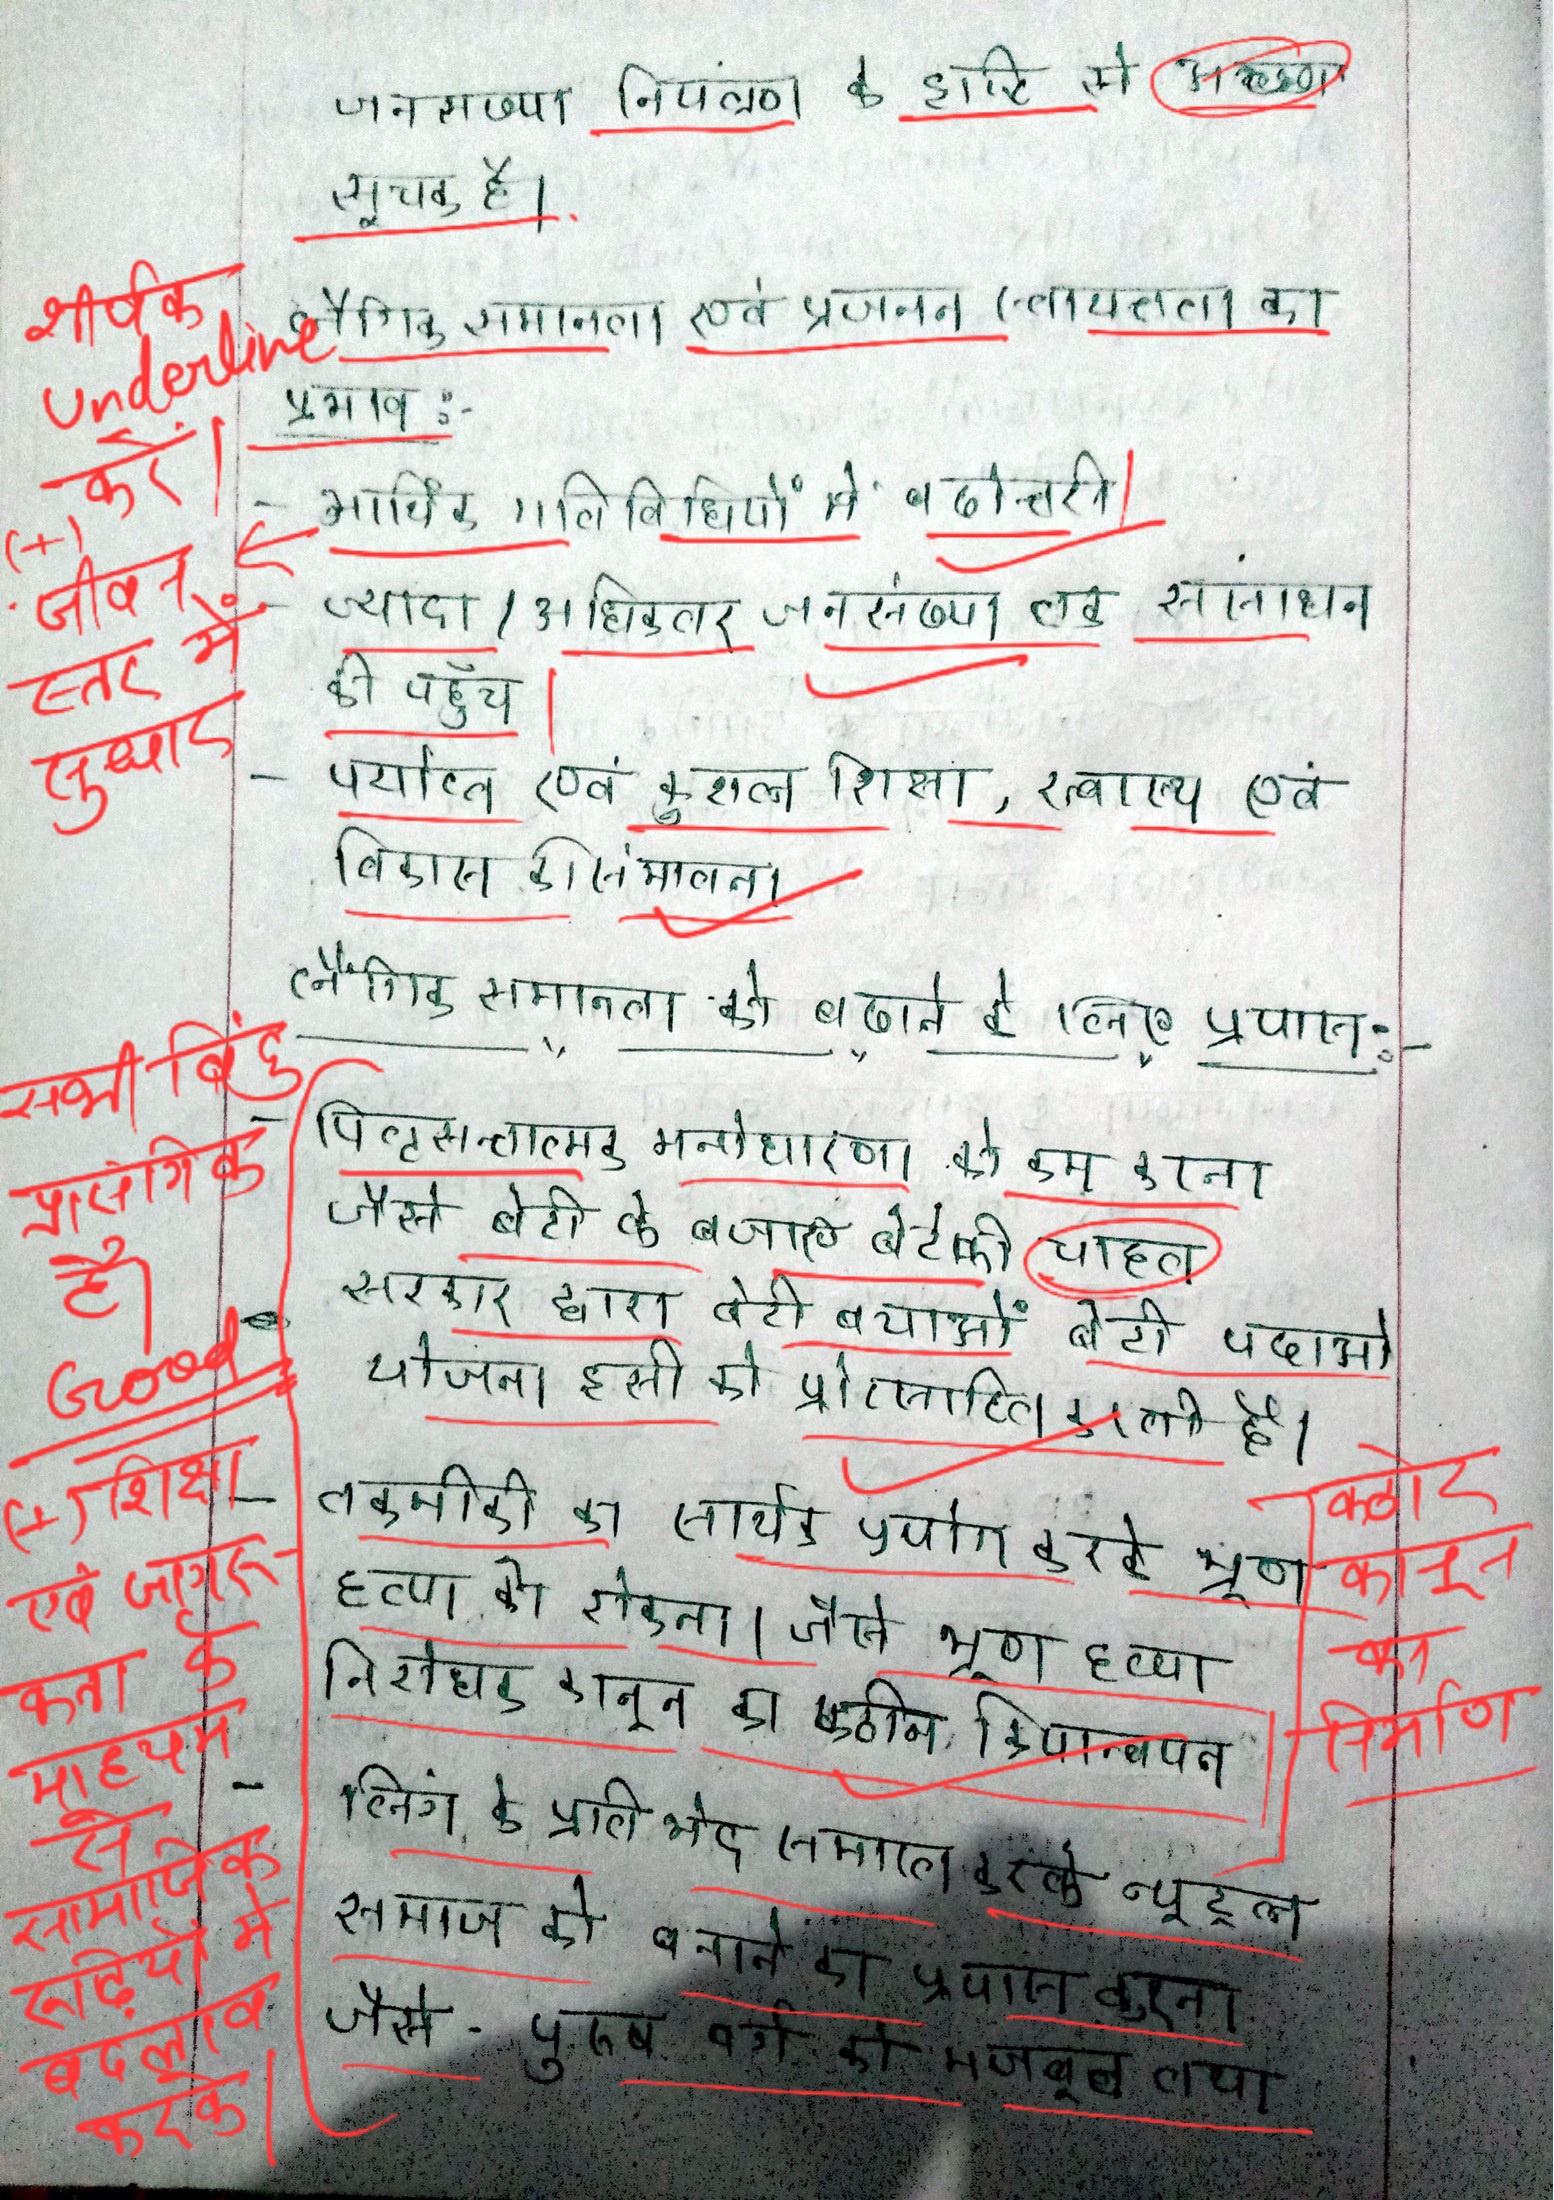 जनसंख्या नियंत्रण के दृष्टि से
सूचक है।
शीर्षक
underline
करें।
लैंगिक समानता एवं प्रजनन स्वायत्तता का
प्रभाव :-
- आर्थिक गतिविधियों में बढोत्तरी
(+)
जीवन
स्तर में
सुधार
- ज्यादा / अधिकतर जनसंख्या तक संसाधन
की पहुँच
- पर्याप्त एवं कुशल शिक्षा, स्वास्थ्य एवं
विकास की संभावना
लैंगिक समानता को बढाने के लिए प्रयास :-
सभी बिंदु
प्रासंगिक
है।
Good
- पितृसत्तात्मक मनोधारणा को कम करना
जैसे बेटी के बजाए बेटे की चाहत
सरकार द्वारा बेटी बचाओं बेटी पढाओ
योजना इसी को प्रोत्साहित करती है।
(+) शिक्षा
एवं जागरू-
कता के
माध्यम
से
सामाजिक
रूढ़ियों में
बदलाव
करके।
- तकनीकी का सार्थक प्रयोग करके भ्रूण
हत्या को रोकना। जैसे भ्रूण हत्या
निरोधक कानून का कठीन क्रियान्वयन
कठोर
कानून
का
निर्माण
- लिंग के प्रति भेद समाप्त करके न्यूट्रल
समाज को बनाने का प्रयास करना
जैसे - पुरुष वर्ग को मजबूत तथा